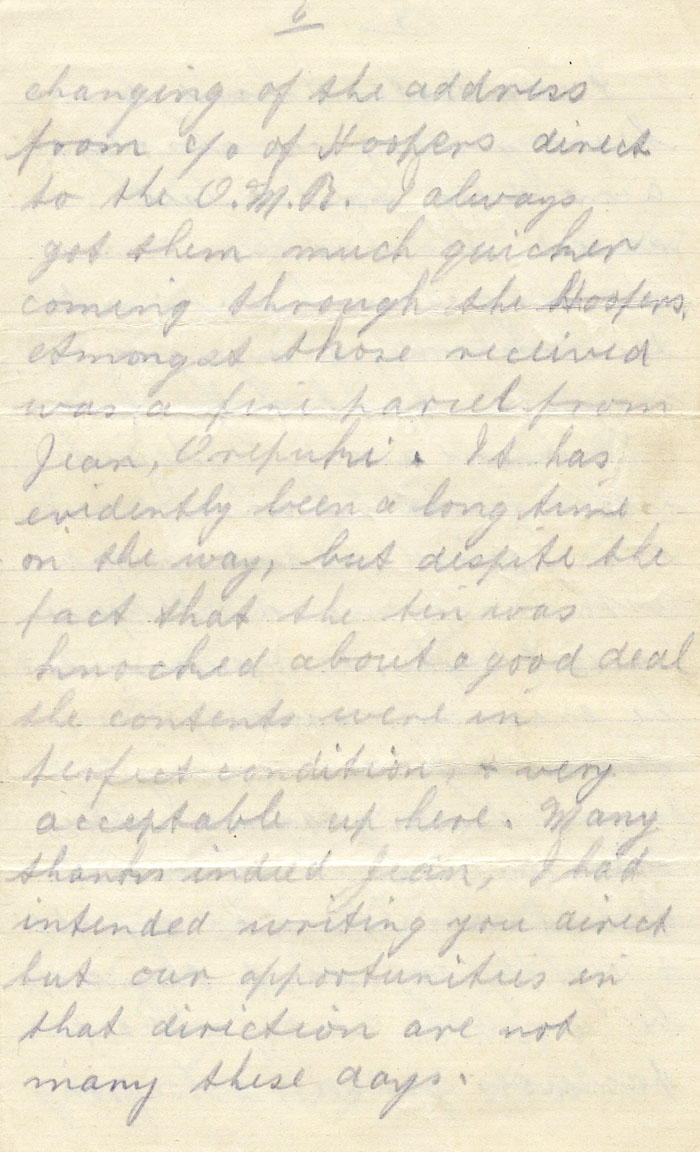 6
changing of the address
from c/o of Hoopers direct
to the O.M.B. I always
got them much quicker
coming through the Hoopers.
Amongst those received
was a fine parcel from
Jean, Orepuki. It has
evidently been a long time
on the way, but despite the
fact that the tin was
knocked about a good deal
the contents were in
perfect condition, & very
acceptable up here. Many
thanks indeed Jean, I had
intended writing you direct
but our opportunities in
that direction are not
many these days.